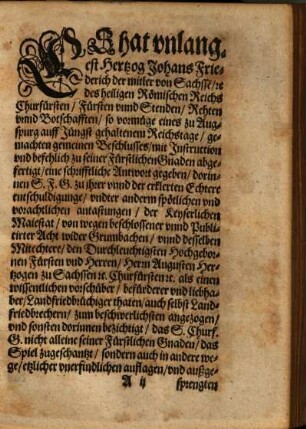 ES hat vnlang-
est Hertzog Johans Frie-
derich der mitler von Sachssē/ ꝛc
des heiligen Römischen Reichs
Churfürsten / Fürsten vnnd Stenden / Rethen
vnnd Botschafften / so vormüge eines zu Aug-
spurg auff Jüngst gehaltenem Reichstage / ge-
machten gemeinen Beschlusses / mit Instruction
vnd befehlich zu seiner FürstlichenGnaden abge-
fertigt / eine schriftliche Antwort gegeben / dorin-
nen S. F. G. zu jhrer vnnd der erklerten Echtere
entschuldigunge / vnder anderm spötlichen vnd
vorachtlichen antastungen / der Keyserlichen
Maiestat / von wegen beschlossener vnnd Publi-
cirter Acht wider Grumbachen / vnnd desselben
Mitechtere / den Durchleuchtigsten Hochgebor-
nen Fürsten vnd Herren / Herrn Augusten Her-
tzogen zu Sachssen ꝛc. Churfürsten ꝛc. als einen
wissentlichen vorschüber / befürderer vnd liebha-
ber / Landfriedbrüchiger thaten / auch selbst Land-
friedbrechern / zum beschwerlichsten angezogen /
vnd sonsten dorinnen bezichtigt / das S. Churf.
G. nicht alleine seiner Fürstlichen Gnaden / das
Spiel zugeschantzt / sondern auch in andere we-
ge / etzlicher vnerfindlichen auflagen / vnd außge-
A ij sprengten